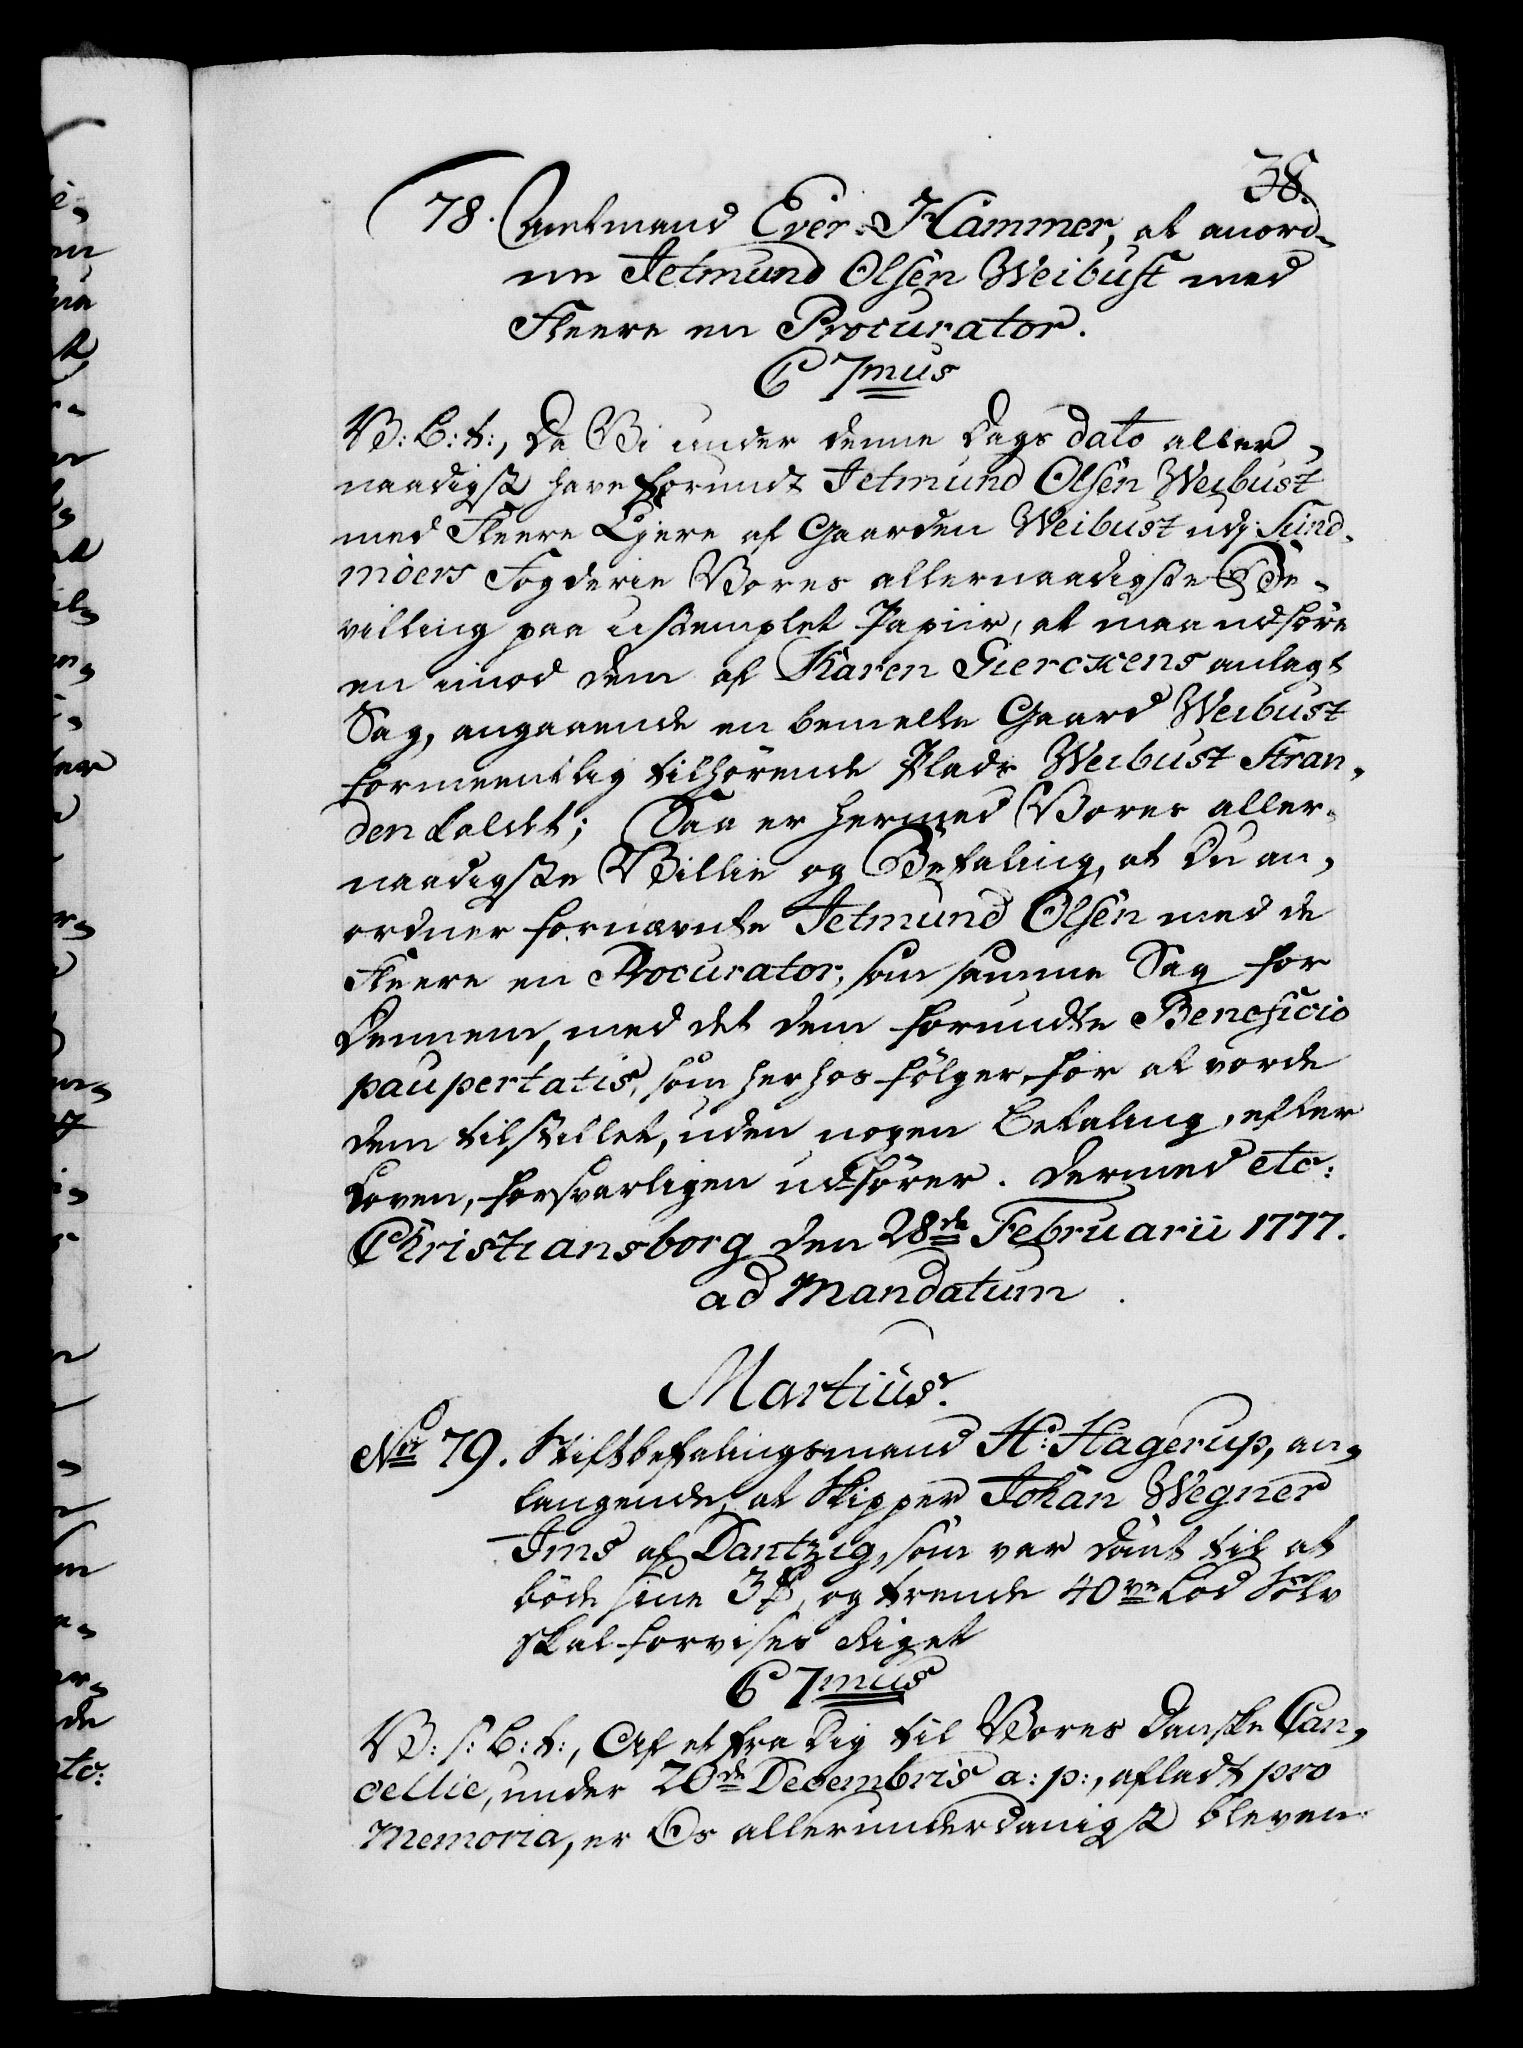 38.
78. Amtmand Ever Hammer, at anord-
ne Jetmund Olsen Weibust med
Fleere en Procurator.
C 7mus
V: B: t:, Da Vi under denne Dags dato aller-
naadigst have forundt Jetmund Olsen Weibust
med Fleere Ejere af Gaarden Weibust udj Sund-
möers Fogderie Vores allernaadigste Be-
villing paa ustemplet Papiir, at maa udföre
en imod dem af Karen Giercxens anlagt
Sag, angaaende en bemelte Gaard Weibust
formeentlig tilhörende Plads Weibust Stran-
den kaldet; Saa er hermed Vores aller-
naadigste Villie og Befaling, at Du an-
ordner fornævnte Jetmund Olsen med de
Fleere en Procurator, som samme Sag for
Dennem, med det dem forundte Beneficio
paupertatis, som herhos fölger for at vorde
dem tilstillet, uden nogen Betaling, efter
Loven, forsvarligen udförer. Dermed etc:
Christiansborg den 28de Februarii 1777.
ad Mandatum
Martius.
No 79. Stiftbefalingsmand H: Hagerup, an-
langende, at Skipper Johan Wegner
Jms af Dantzig, som var dömt til at
böde sine 3 ℔, og trende 40ve Lod Sölv
skal forvises Riget
C 7mus
V: s: B: t:, Af et fra Dig til Vores Danske Can-
cellie, under 20de Decembris a: p:, afladt pro
Memoria, er Os allerunderdanigst bleven